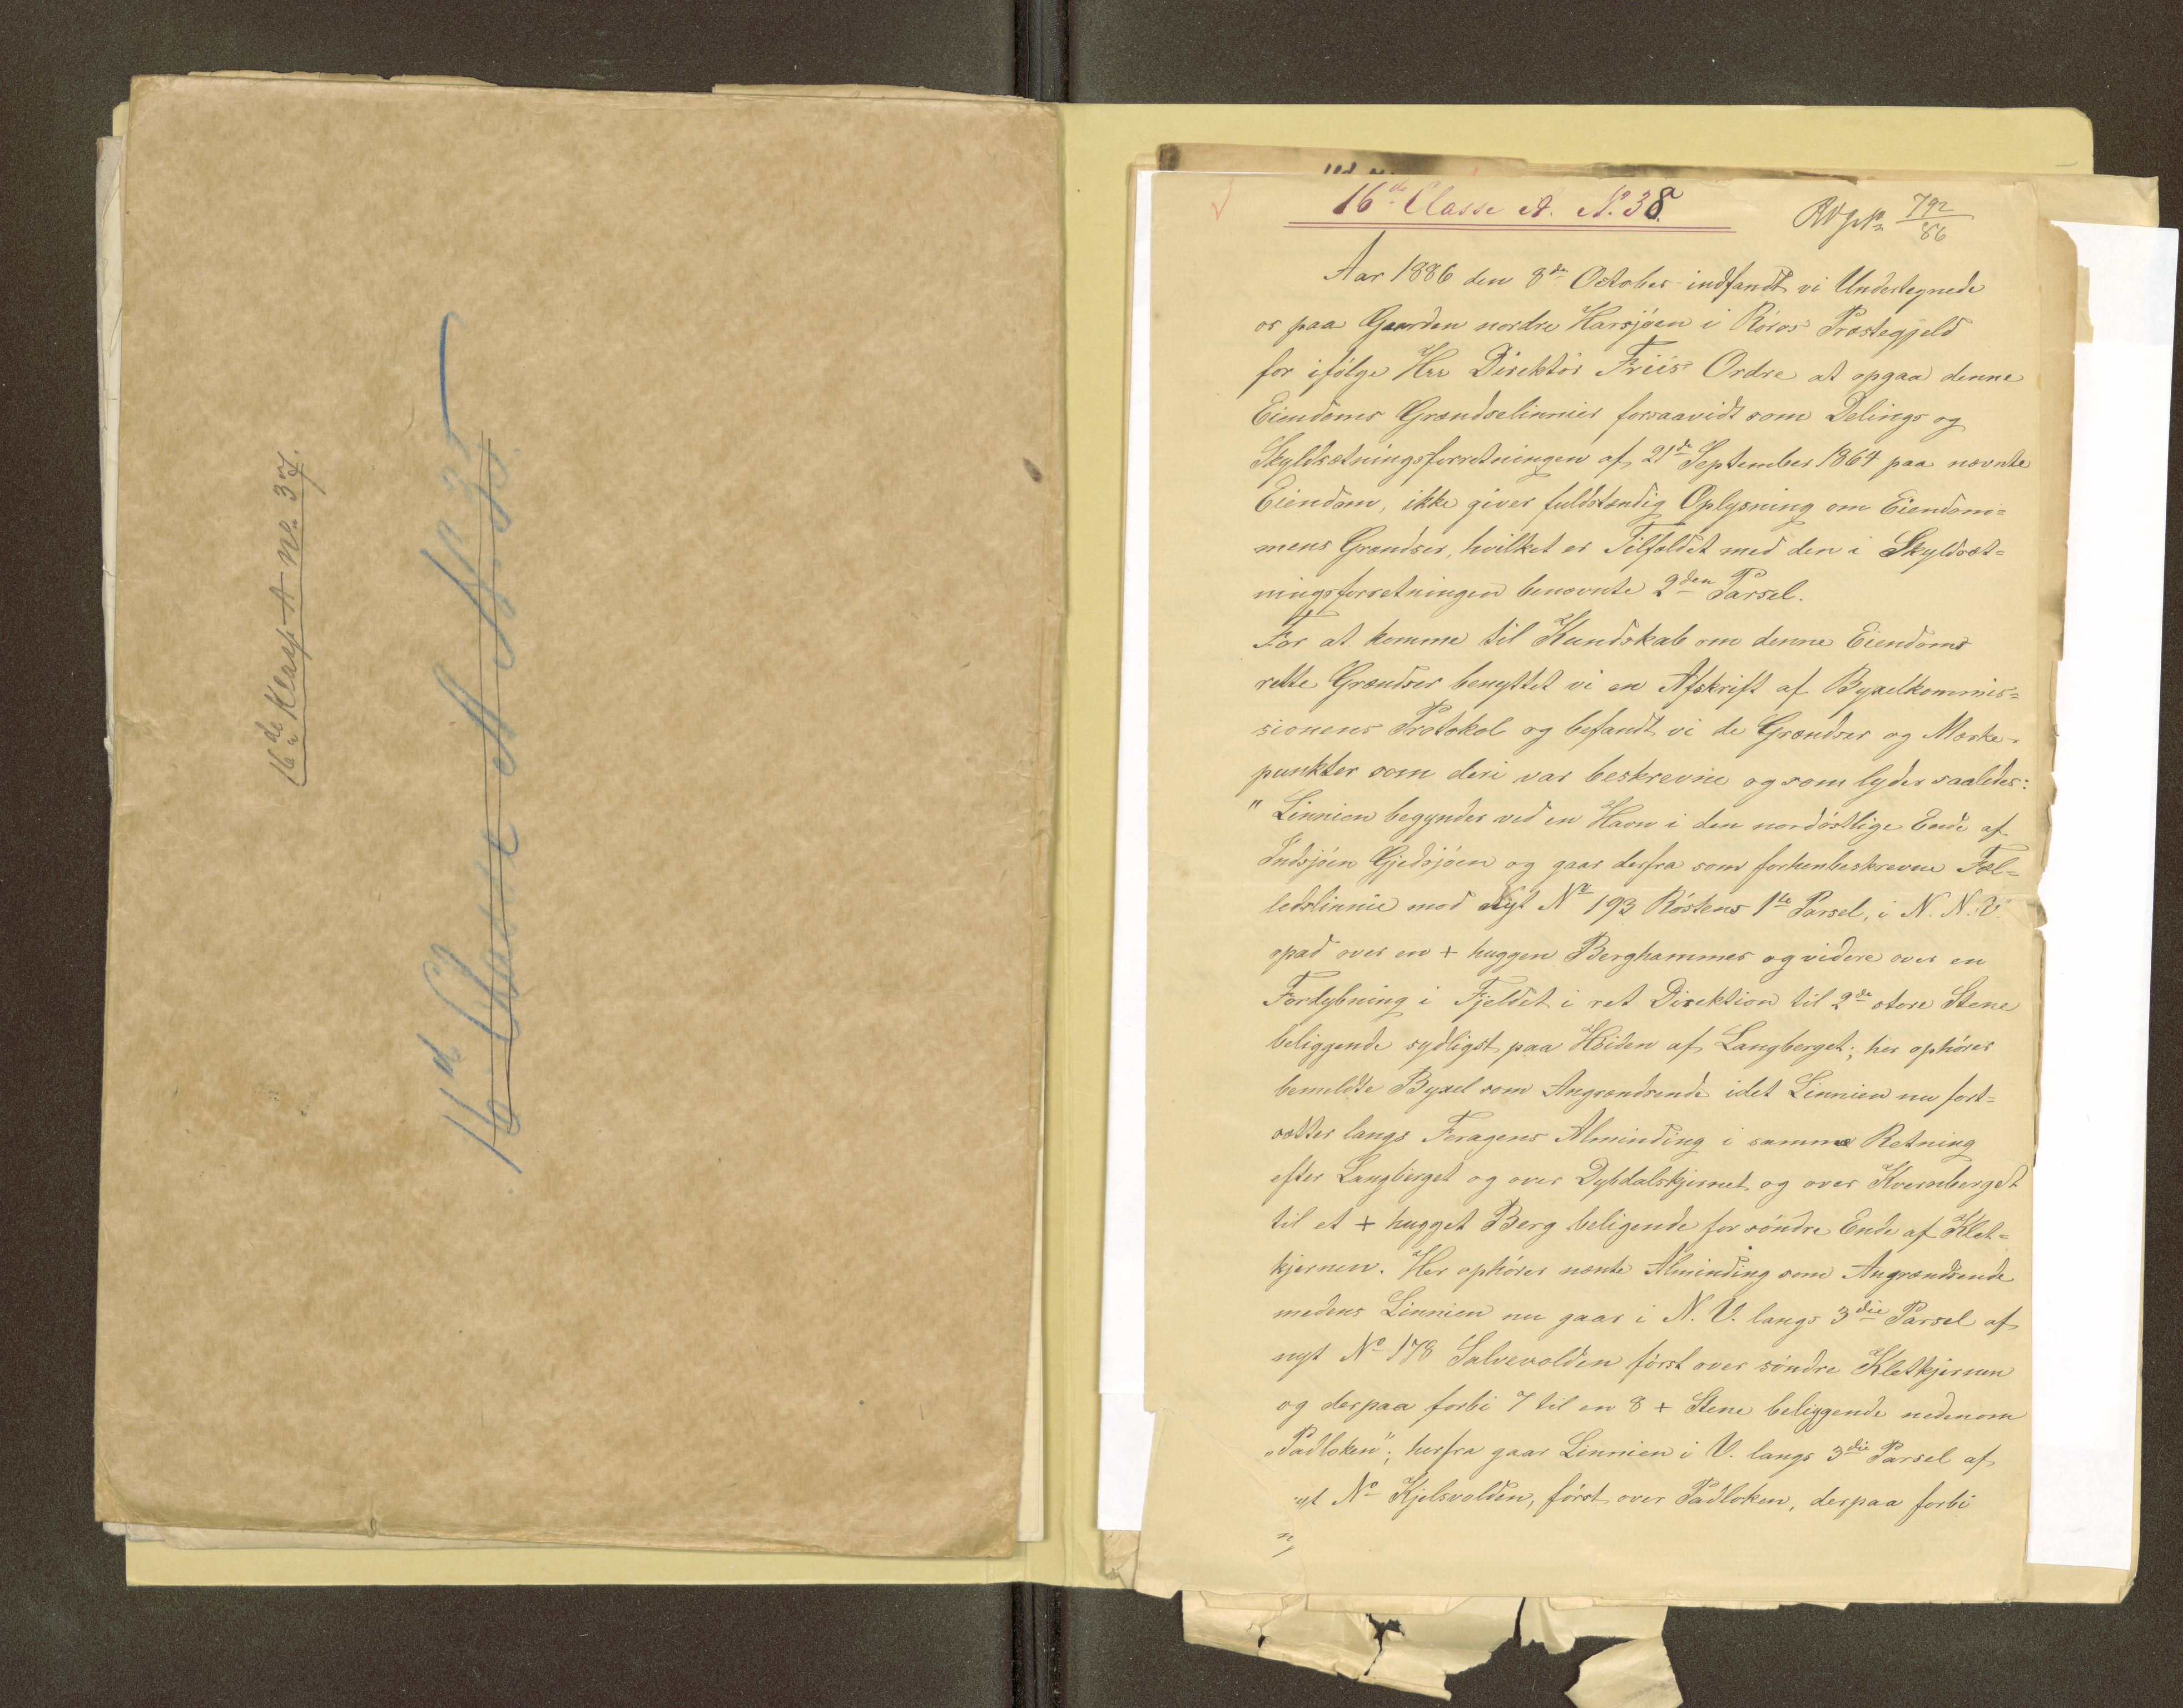 16de Klasse A No 37.
16d Classe A No 35.
16de Classe A. No. 38.
792
86
Aar 1886 den 8de October indfandt vi Undertegnede
os paa Gaarden nordre Harsjøen i Røros Præstegjeld
for ifølge Hrr Direktør Friis Ordre at opgaa denne
Eiendoms Grændselinnier forsaavidt som Delings og
Skyldsætningsforretningen af 21de September 1864 paa nævnte
Eiendom, ikke giver fuldstændig Oplysning om Eiendom=
mens Grændser, hvilket er Tilfældet med den i Skyldsæt=
ningsforretningen benævnte 2den Parsel.
For at komme til Kundskab om denne Eiendoms
rette Grændser benyttet vi en Afskrift af Byxelkommis=
sionens Protokol og befandt vi de Grændser og Mærke=
punkter som deri var beskrevne og som lyder saaledes:
" Linnien begynder ved en Havn i den nordøstlige Ende af
Indsjøen Gjedsjøen og gaar derfra som forhenbeskrevne Fæl=
ledslinnie mod Nyt No 193 Røstens 1te Parsel, i N. N. V.
opad over en + huggen Berghammer og videre over en
Fordybning i Fjeldet i ret Direktion til 2de store Stene
beliggende sydligst paa Høiden af Langberget; her ophører
bemeldte Byxel som Angrændsende idet Linnien nu fort=
sætter langs Feragens Alminding i samme Retning
efter Langberget og over Dybdalskjernet og over Kvernberget
til et + hugget Berg beligende for søndre Ende af Klet=
kjernen. Her ophører nænte Alminding som Angrændsende
medens Linnien nu gaar i N. V. langs 3die Parsel af
nyt No 178 Sulvevolden først over søndre Kletkjernen
og derpaa forbi 7 til en 8 + Stene beliggende nedenom
"Padloken"; herfra gaar Linnien i V. langs 3die Parsel af
nyt No Kjelsvolden, først over Padloken, derpaa forbi